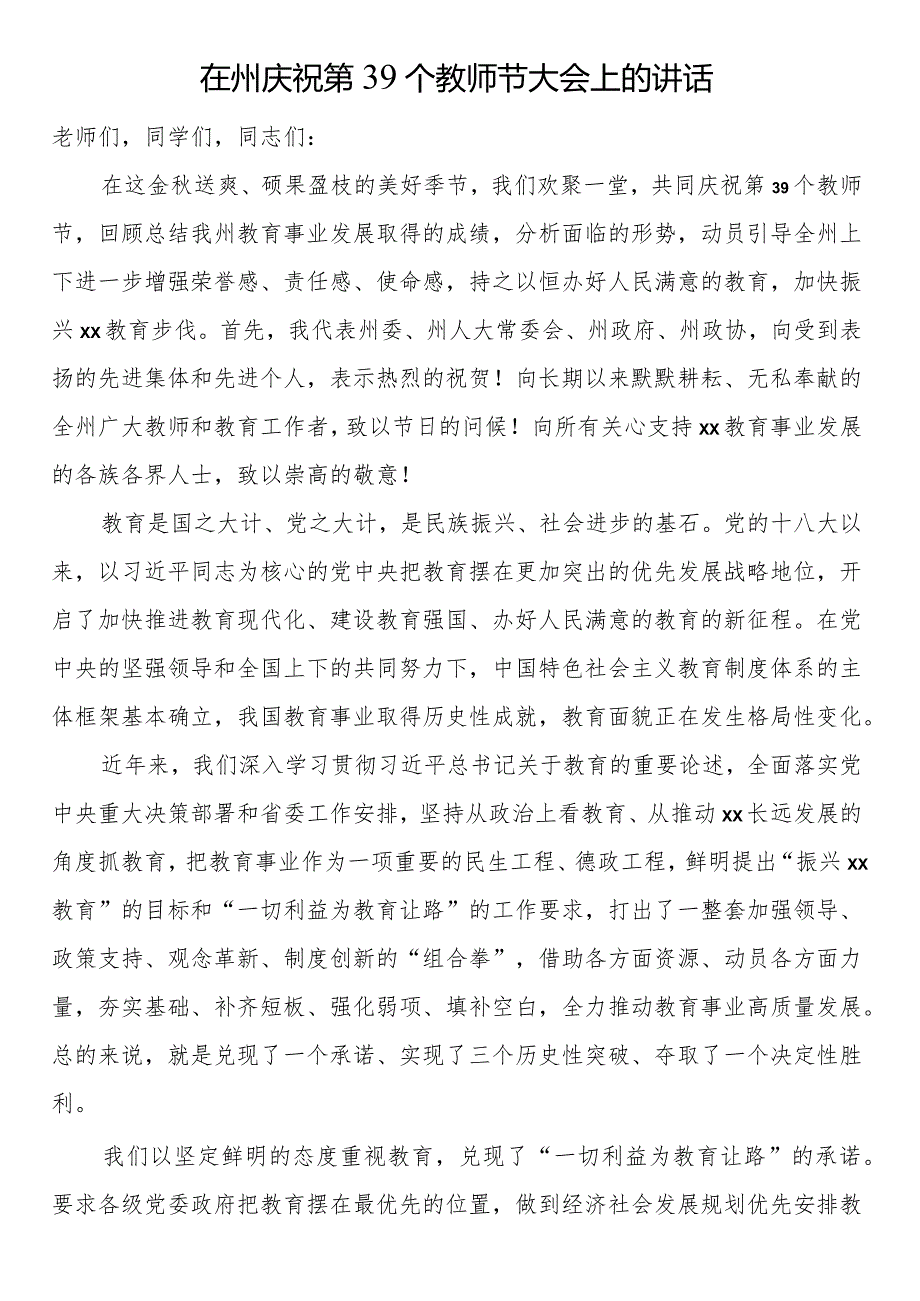 在州庆祝第 39 个教师节大会上的讲话
老师们，同学们，同志们：
在这金秋送爽、硕果盈枝的美好季节，我们欢聚一堂，共同庆祝第 39 个教师
节，回顾总结我州教育事业发展取得的成绩，分析面临的形势，动员引导全州上
下进一步增强荣誉感、责任感、使命感，持之以恒办好人民满意的教育，加快振
兴 xx 教育步伐。首先，我代表州委、州人大常委会、州政府、州政协，向受到表
扬的先进集体和先进个人，表示热烈的祝贺！向长期以来默默耕耘、无私奉献的
全州广大教师和教育工作者，致以节日的问候！向所有关心支持 xx 教育事业发展
的各族各界人士，致以崇高的敬意！
教育是国之大计、党之大计，是民族振兴、社会进步的基石。党的十八大以
来，以习近平同志为核心的党中央把教育摆在更加突出的优先发展战略地位，开
启了加快推进教育现代化、建设教育强国、办好人民满意的教育的新征程。在党
中央的坚强领导和全国上下的共同努力下，中国特色社会主义教育制度体系的主
体框架基本确立，我国教育事业取得历史性成就，教育面貌正在发生格局性变化。
近年来，我们深入学习贯彻习近平总书记关于教育的重要论述，全面落实党
中央重大决策部署和省委工作安排，坚持从政治上看教育、从推动 xx 长远发展的
角度抓教育，把教育事业作为一项重要的民生工程、德政工程，鲜明提出“振兴 xx
教育”的目标和“一切利益为教育让路”的工作要求，打出了一整套加强领导、
政策支持、观念革新、制度创新的“组合拳”，借助各方面资源、动员各方面力
量，夯实基础、补齐短板、强化弱项、填补空白，全力推动教育事业高质量发展。
总的来说，就是兑现了一个承诺、实现了三个历史性突破、夺取了一个决定性胜
利。
我们以坚定鲜明的态度重视教育，兑现了“一切利益为教育让路”的承诺。
要求各级党委政府把教育摆在最优先的位置，做到经济社会发展规划优先安排教